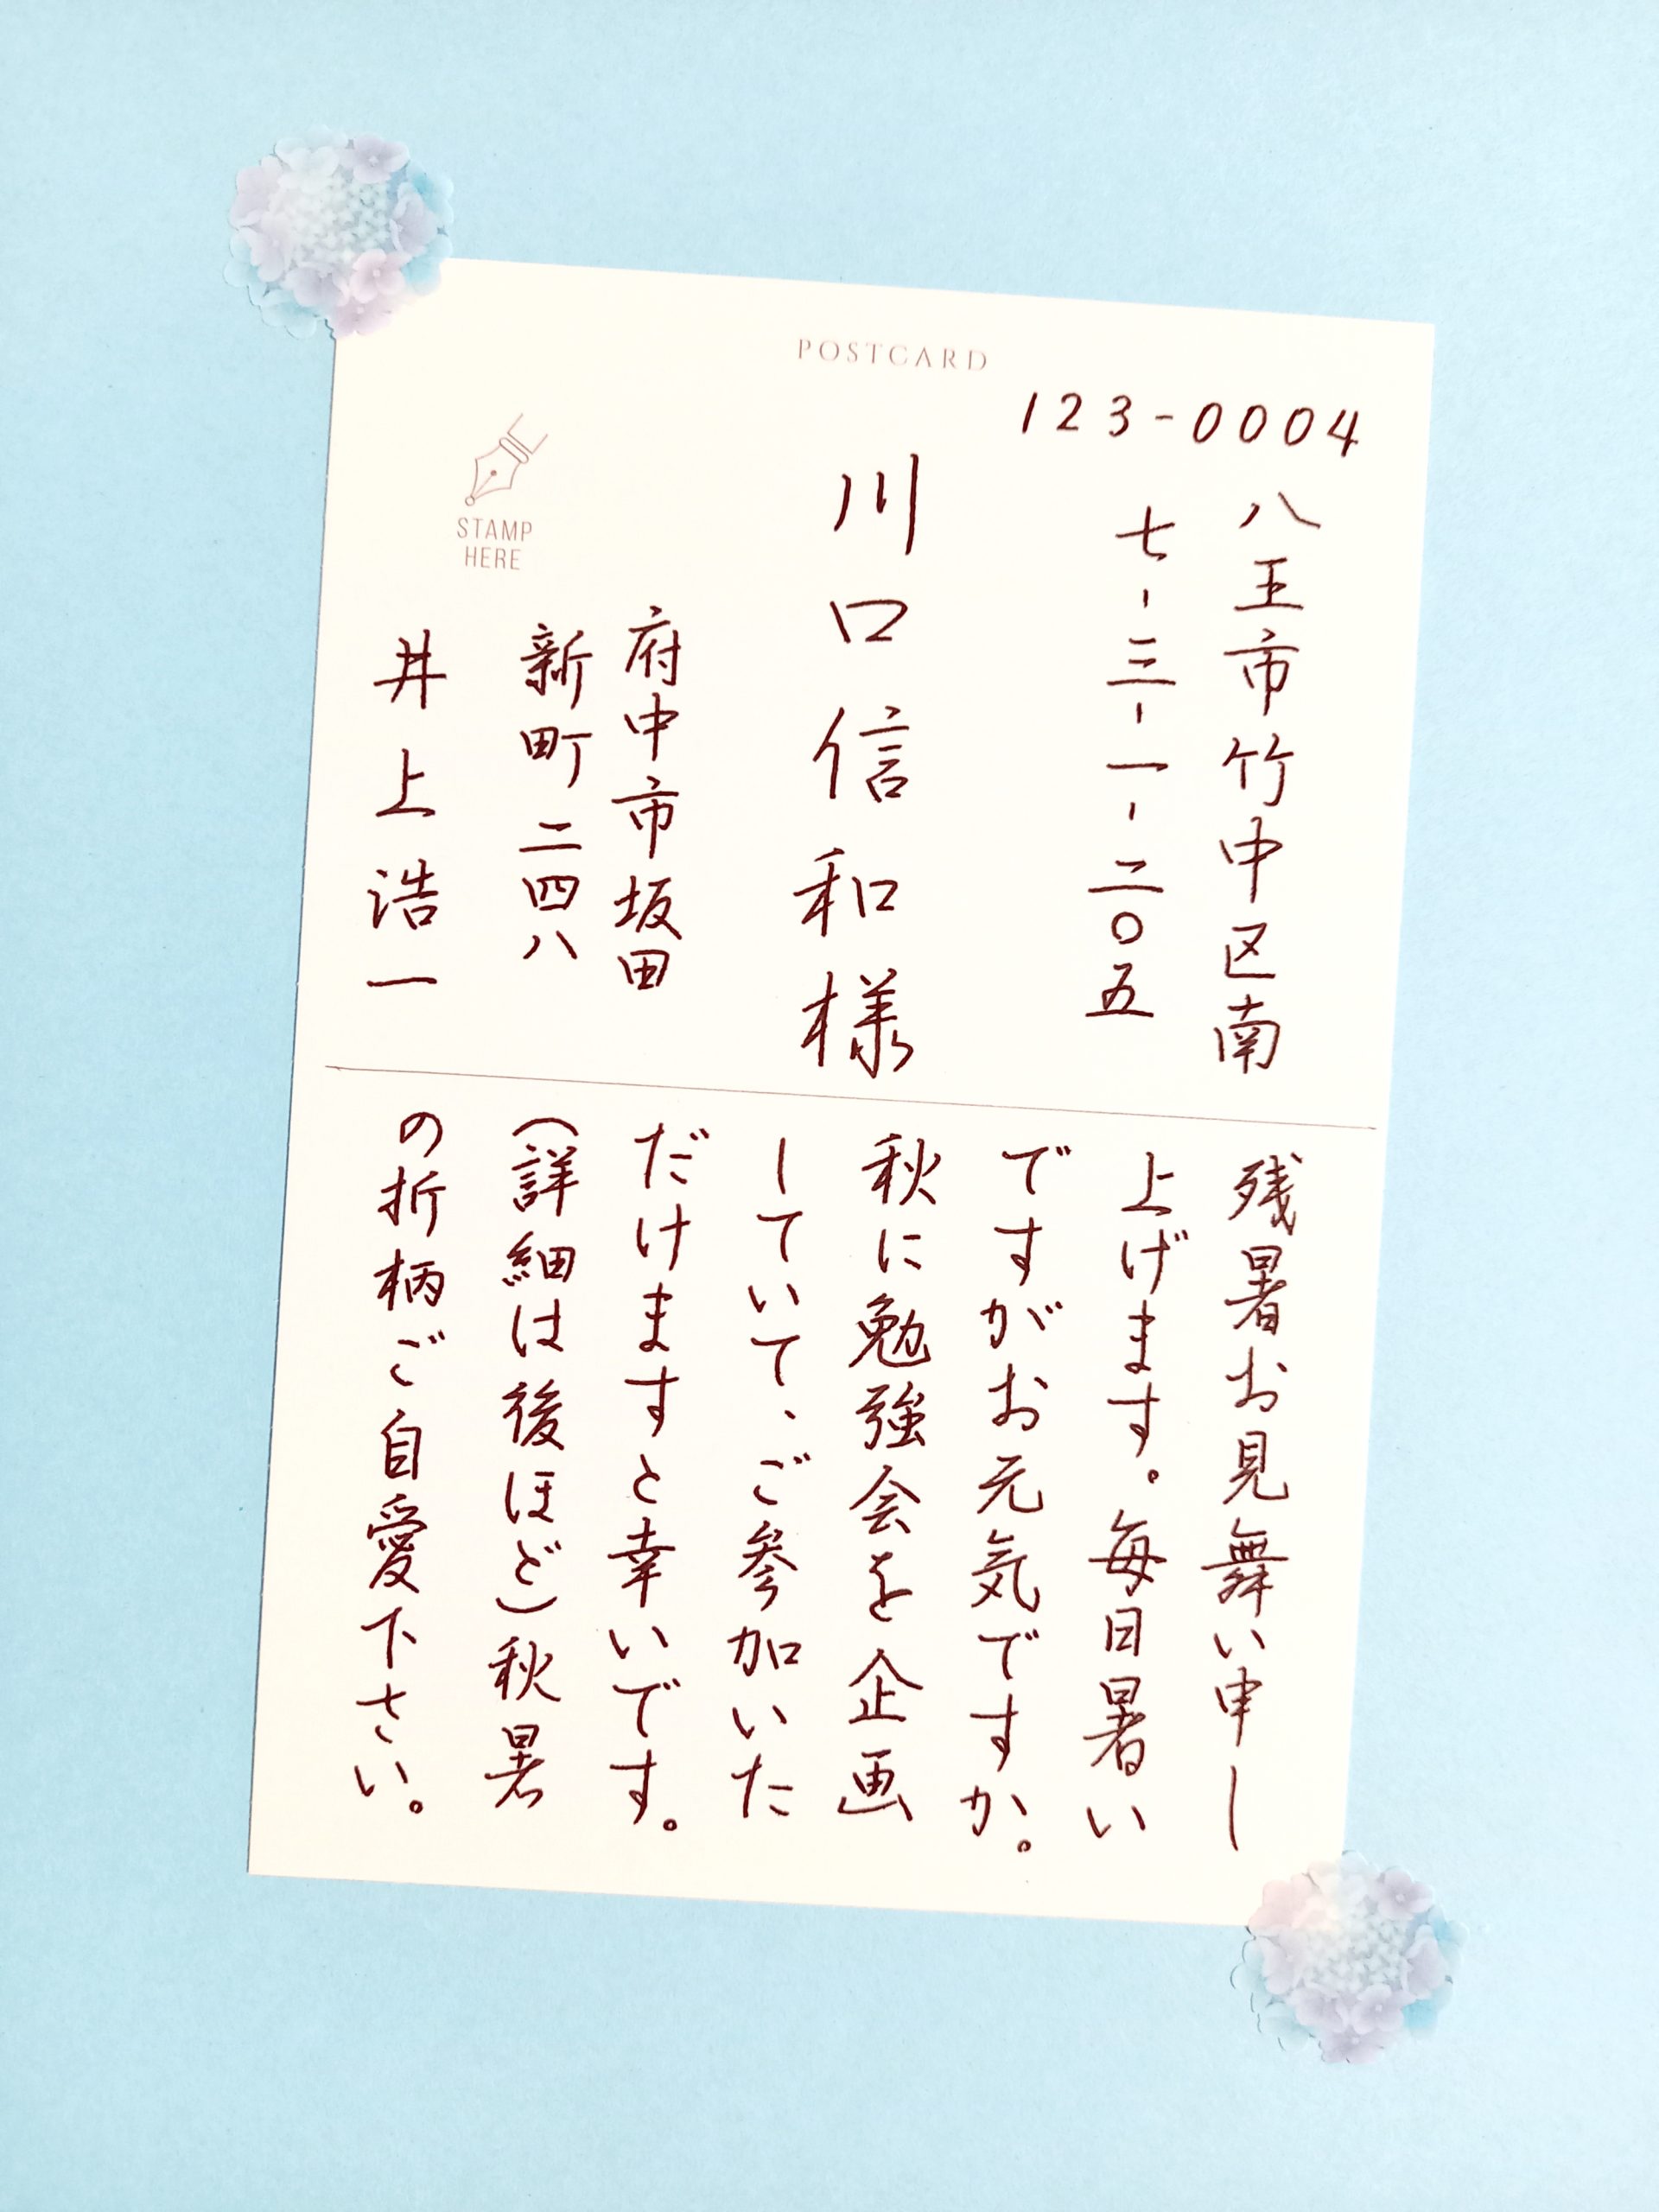 POSTCARD
123-0004
八王市竹中区南
七-三-一-二〇五
川口信和様
STAMP
HERE
府中市坂田
新町二四八
井上浩一
残暑お見舞い申し
上げます。毎日暑い
ですがお元気ですか。
秋に勉強会を企画
していて、ご参加いた
だけますと幸いです。
(詳細は後ほど)秋暑
の折柄ご自愛下さい。